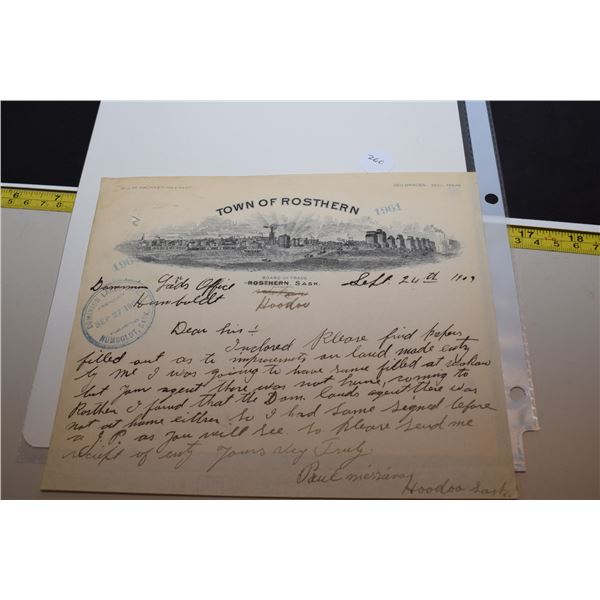 260
TOWN OF ROSTHERN
1961
BOARD OF TRADE
ROSTHERN, SASK.
Hoodoo
Sept. 24th 1909
Dominion Lands Office
Humboldt
SEP 27
HUMBOLDT, SASK.
Dear Sir :-
Inclosed Please find papers
filled out as to improvments on land made entry
by me I was going to have same filled at
but Jam agent there was not home, coming to
Rosther I found that the Dom. lands agent there was
not at home either so I had same signed before
a J.P. as you will see. So Please send me
reciept of enty Yours Vey Truly
Paul
Hoodoo Sask.
6 7
17 18